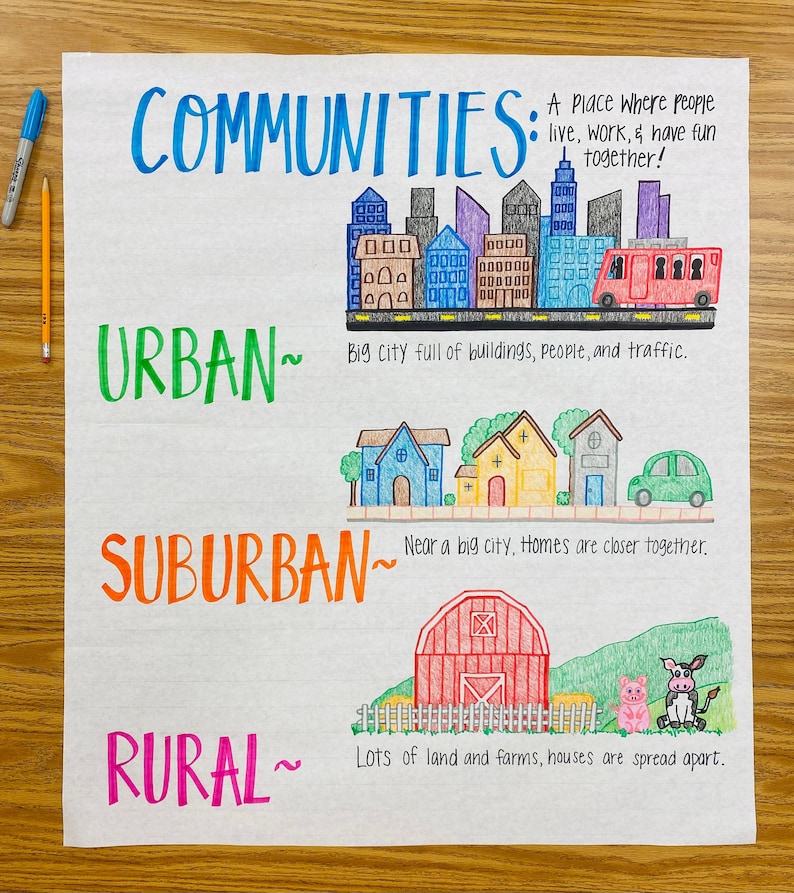 COMMUNITIES:
A PLACE WHERE PEOPLE
LIVE, WORK, & HAVE FUN
TOGETHER!
URBAN~
BIG CITY FULL OF BUILDINGS, PEOPLE, AND TRAFFIC.
SUBURBAN~
NEAR A BIG CITY, HOMES ARE CLOSER TOGETHER.
RURAL~
LOTS OF LAND AND FARMS, HOUSES ARE SPREAD APART.
Sharpie